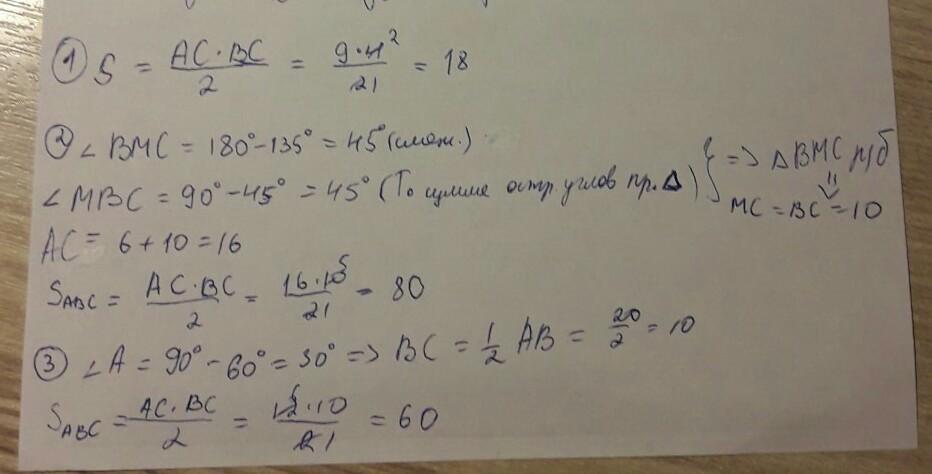 ① S = AC·BC/2 = 9·4²/21 = 18
② ∠ BMC = 180°-135° = 45° (смеж.)
∠ MBC = 90°-45° = 45° (То сумме остр. углов пр. Δ) } => Δ BMC р/б
MC = BC = 10
AC = 6+10 = 16
S ABC = AC·BC/2 = 16·10⁵/21 = 80
③ ∠A = 90°-60° = 30° => BC = 1/2 AB = 20/2 = 10
S ABC = AC·BC/2 = 12·10/21 = 60